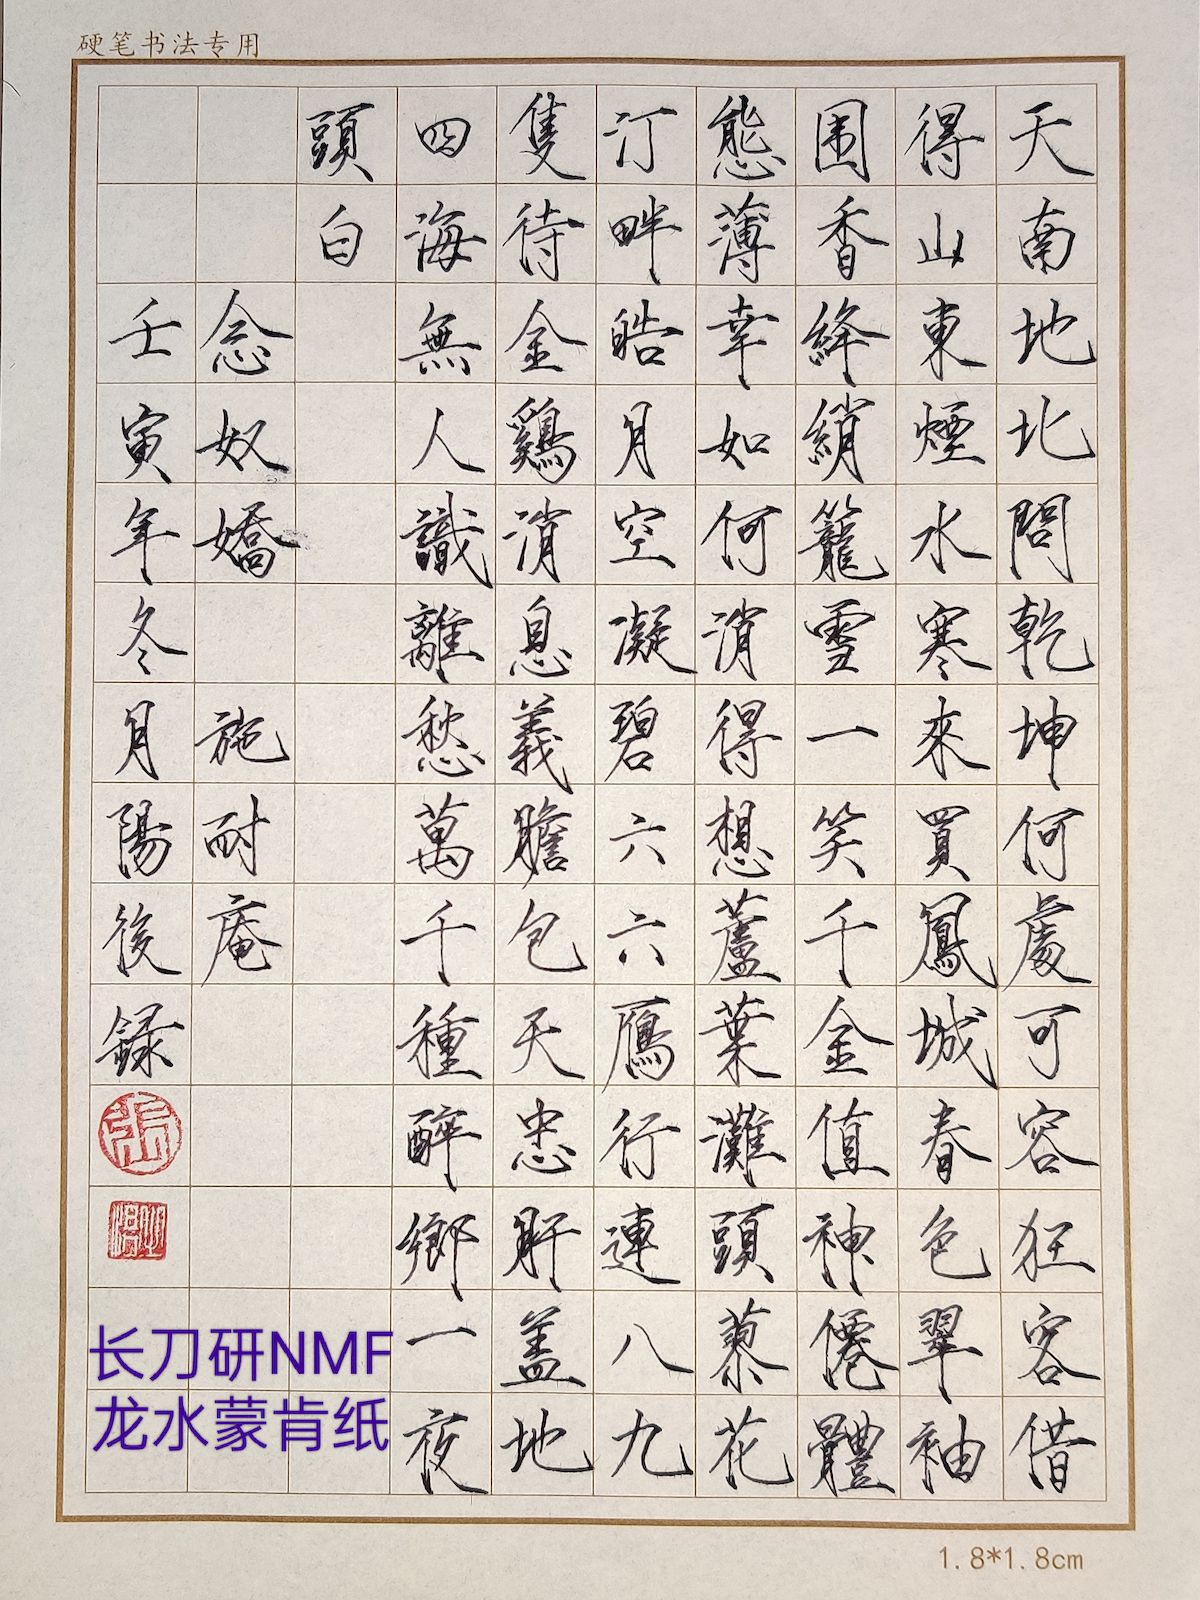 硬笔书法专用
天南地北問乾坤何處可容狂客借
得山東煙水寒來買鳳城春色翠袖
围香絳綃籠雪一笑千金值神僊體
態薄幸如何消得想蘆葉灘頭蓼花
汀畔皓月空凝碧六六鴈行連八九
隻待金鷄消息義膽包天忠肝盖地
四海無人識離愁萬千種醉鄉一夜
頭白
念奴嬌 施耐庵
壬寅年冬月陽後録
长刀研NMF
龙水蒙肯纸
1.8*1.8cm